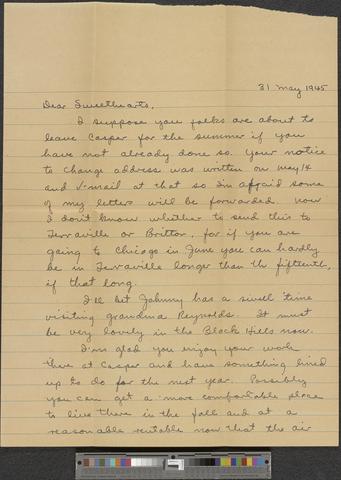 31 May 1945
Dear Sweethearts,
I suppose you folks are about to
leave Casper for the summer if you
have not already done so. Your notice
to change address was written on May 14
and V-mail at that so I'm afraid some
of my letters will be forwarded. Now
I don't know whether to send this to
Terraville or Britton, for if you are
going to Chicago in June you can hardly
be in Terraville longer than the fifteenth,
if that long.
I'll bet Johnny has a swell time
visiting grandma Reynolds. It must
be very lovely in the Black Hills now.
I'm glad you enjoy your work
there at Casper and have something lined
up to do for the next year. Possibly
you can get a more comfortable place
to live there in the fall and at a
reasonable rentable now that the air